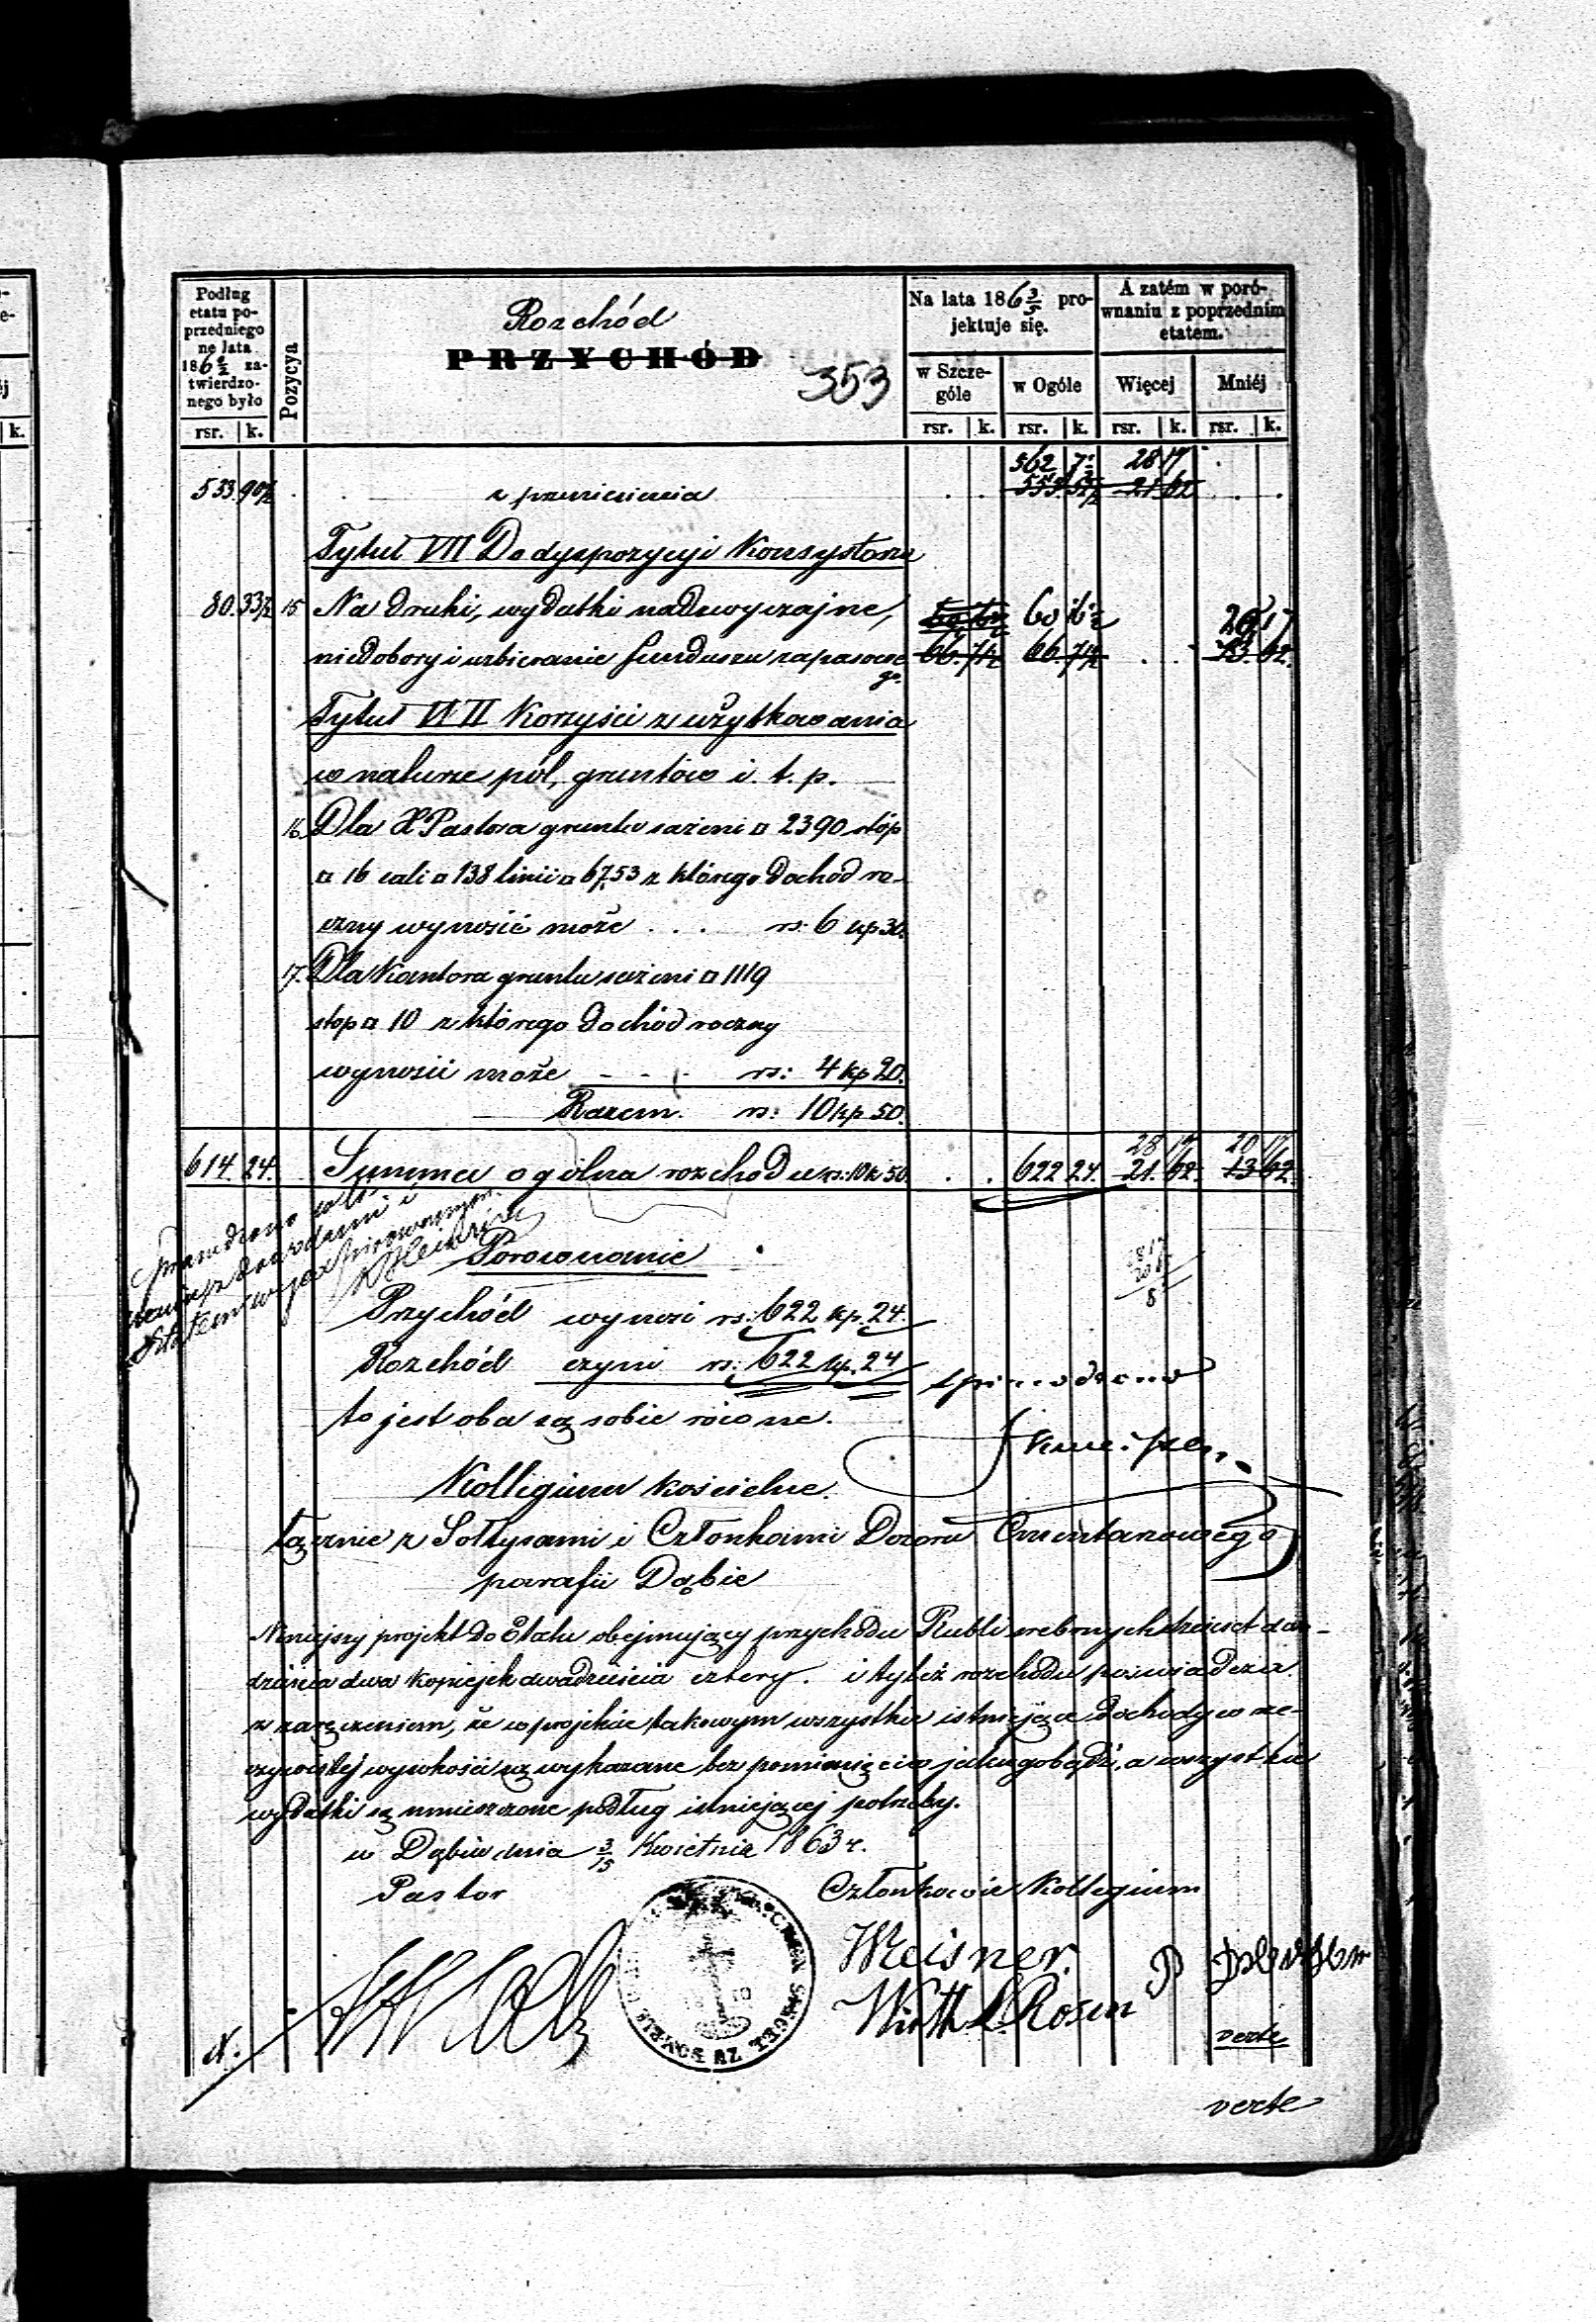 Podług
etatu po-
przedniego
na lata
186 0/2 za-
twierdzo-
nego było
rsr. k.
Pozycya
Rozchód
PRZYCHÓD
353
Na lata 186 3/5 pro-
jektuje się.
w Szcze-
góle
w Ogóle
rsr. k. rsr. k.
A zatém w poró-
wnaniu z poprzednim
etatem.
Więcej
Mniéj
rsr. k. rsr. k.
562 7½ 28 17
533. 90½ z przeniesienia 555 52½ 21 62
Tytuł VII Do dyspozycyi Konsystorza
80. 33½ 15 Na druki, wydatki nadzwyczajne, 60 16½ 20 17
niedobory i uzbieranie funduszu zapasowe 66. 71½ 66. 71½ 13. 62.
go.
Tytuł VIII Korzyści z użytkowania
w naturze pól, gruntów i. t. p.
16. Dla X Pastora gruntu sażeni □ 2390 stóp
□ 16 cali □ 138 linii □ 67,53 z którego dochód ro-
czny wynosić może . . . rs: 6 kp 30.
17. Dla Kantora gruntu sażeni □ 1119
stop □ 10 z którego dochód roczny
wynosić może - - - rs: 4 kp 20.
Razem. rs: 10 kp 50.
28 17 20 17
614. 24. Summa ogólna rozchodu rs: 10 k 50. 622 24. 21. 62. 13 62.
Porównanie
Przychód wynosi rs: 622 kp. 24.
Rozchód czyni rs: 622 kp. 24
to jest oba są sobie równe.
sprawdzono
Kollegium Kościelne.
łącznie z Sołtysami i Członkami Dozoru Cmentarnowego
parafii Dąbie
Niniejszy projekt do Etatu obejmujący przychodu Rubli srebrnych sześćset dwa-
dzieścia dwa kopiejek dwadzieścia cztery. i tyleż rozchodu poświadcza
z zaręczeniem, że w projekcie takowym wszystkie istniejące dochody w rze-
czywistej wysokości są wykazane bez pominięcia jakiegobądź, a wszystkie
wydatki są umieszczone podług istniejącej potrzeby.
w Dąbiu dnia 3/15 Kwietnia 1863 r.
Pastor
Członkowie Kollegium
Meisner.
Wirth L. Rosen
verte
verte